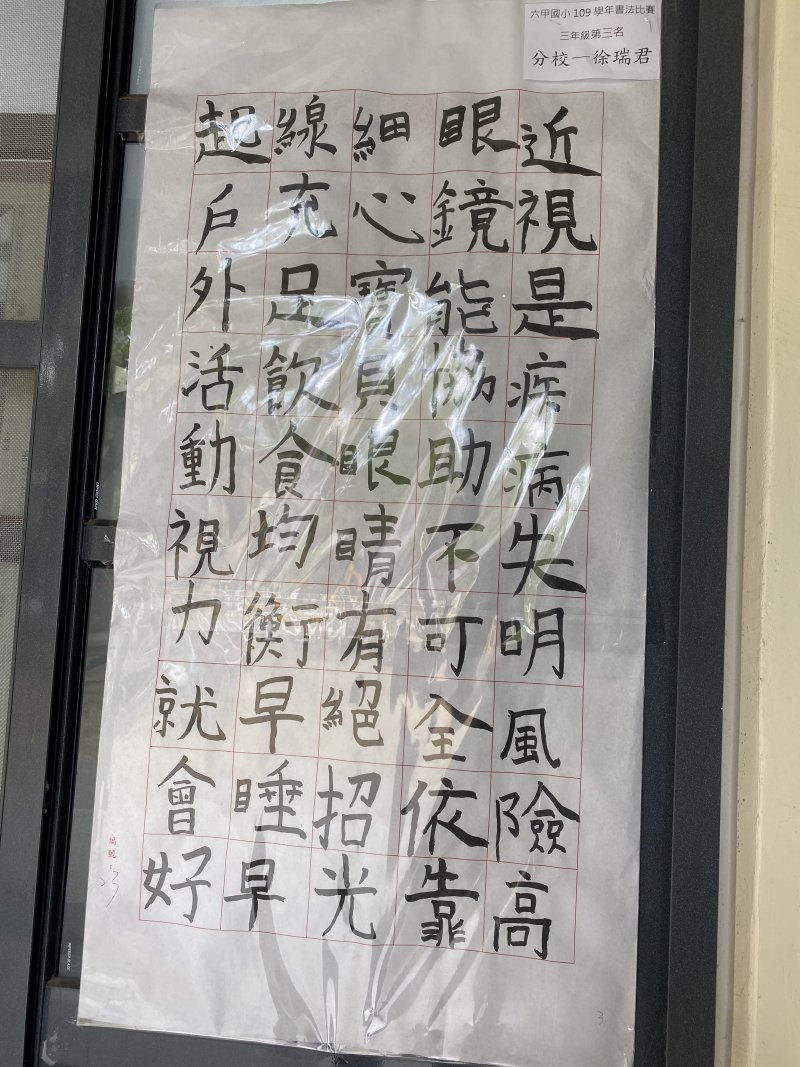 六甲國小 109 學年書法比賽
三年級第三名
分校一徐瑞君
近視是疾病失明風險高
眼鏡能協助不可全依靠
細心寶貝眼睛有絕招光
線充足飲食均衡早睡早
起戶外活動視力就會好
編號
3